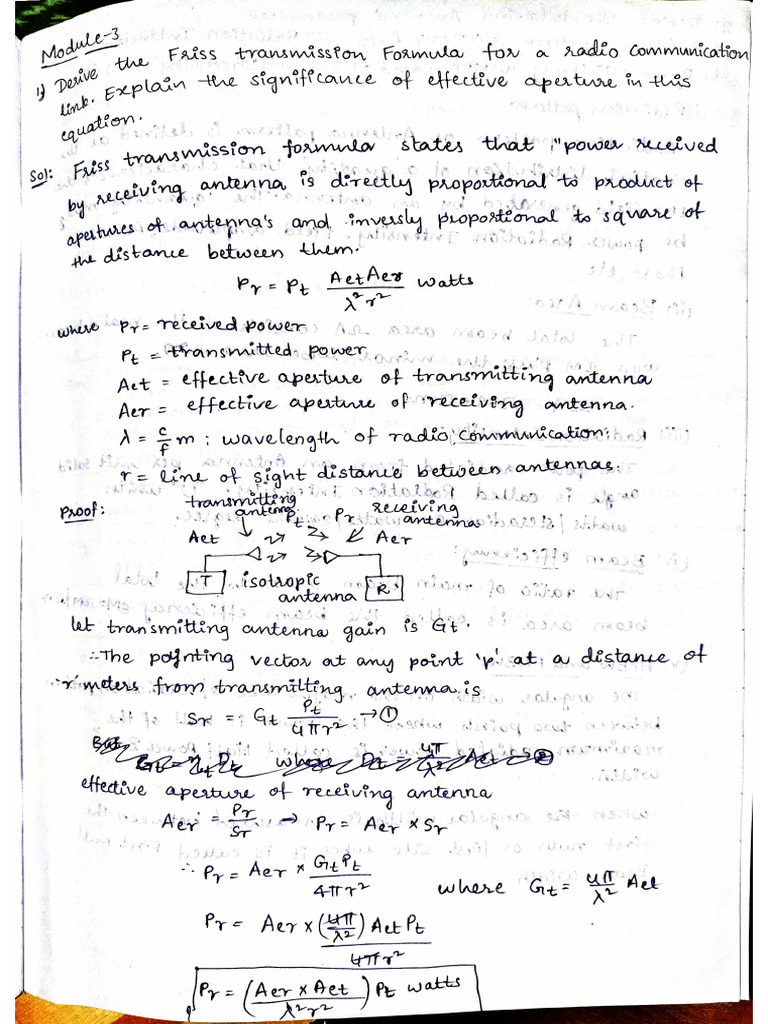 Module-3
1) Derive the Friss transmission Formula for a radio communication
link. Explain the significance of effective aperture in this
equation.
Sol: Friss transmission formula states that "power received
by receiving antenna is directly proportional to product of
apertures of antenna's and inversly proportional to square of
the distance between them.
Pr = Pt AetAer/λ²r² watts
where Pr = received power
Pt = transmitted power
Aet = effective aperture of transmitting antenna
Aer = effective aperture of receiving antenna.
λ = c/f m : wavelength of radio communication.
r = line of sight distance between antennas.
Proof: transmitting antenna Pt Pr receiving antenna
Aet Aer
T isotropic antenna R
let transmitting antenna gain is Gt.
∴ The poynting vector at any point 'p' at a distance of
'r' meters from transmitting antenna is
Sr = Gt Pt/4πr² → ①
effective aperture of receiving antenna
Aer = Pr/Sr → Pr = Aer × Sr
∴ Pr = Aer × GtPt/4πr² where Gt = 4π/λ² Aet
Pr = Aer × (4π/λ²) Aet Pt/4πr²
Pr = (Aer × Aet/λ²r²) Pt watts